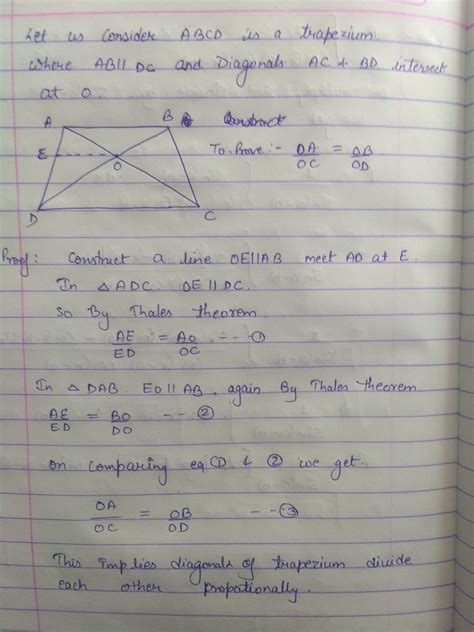 Let us consider ABCD is a trapezium
where AB || DC and Diagonals AC & BD intersect
at O.
A B Construct
E O To Prove :- OA/OC = OB/OD
D C
Proof: Construct a line OE||AB meet AD at E.
In △ ADC. OE || DC.
So By Thales theorem
AE/ED = AO/OC --- ①
In △ DAB. EO || AB, again By Thales Theorem.
AE/ED = BO/DO -- ②
On comparing eq ① & ② we get.
OA/OC = OB/OD -- ③
This implies diagonals of trapezium divide
each other propotionally.